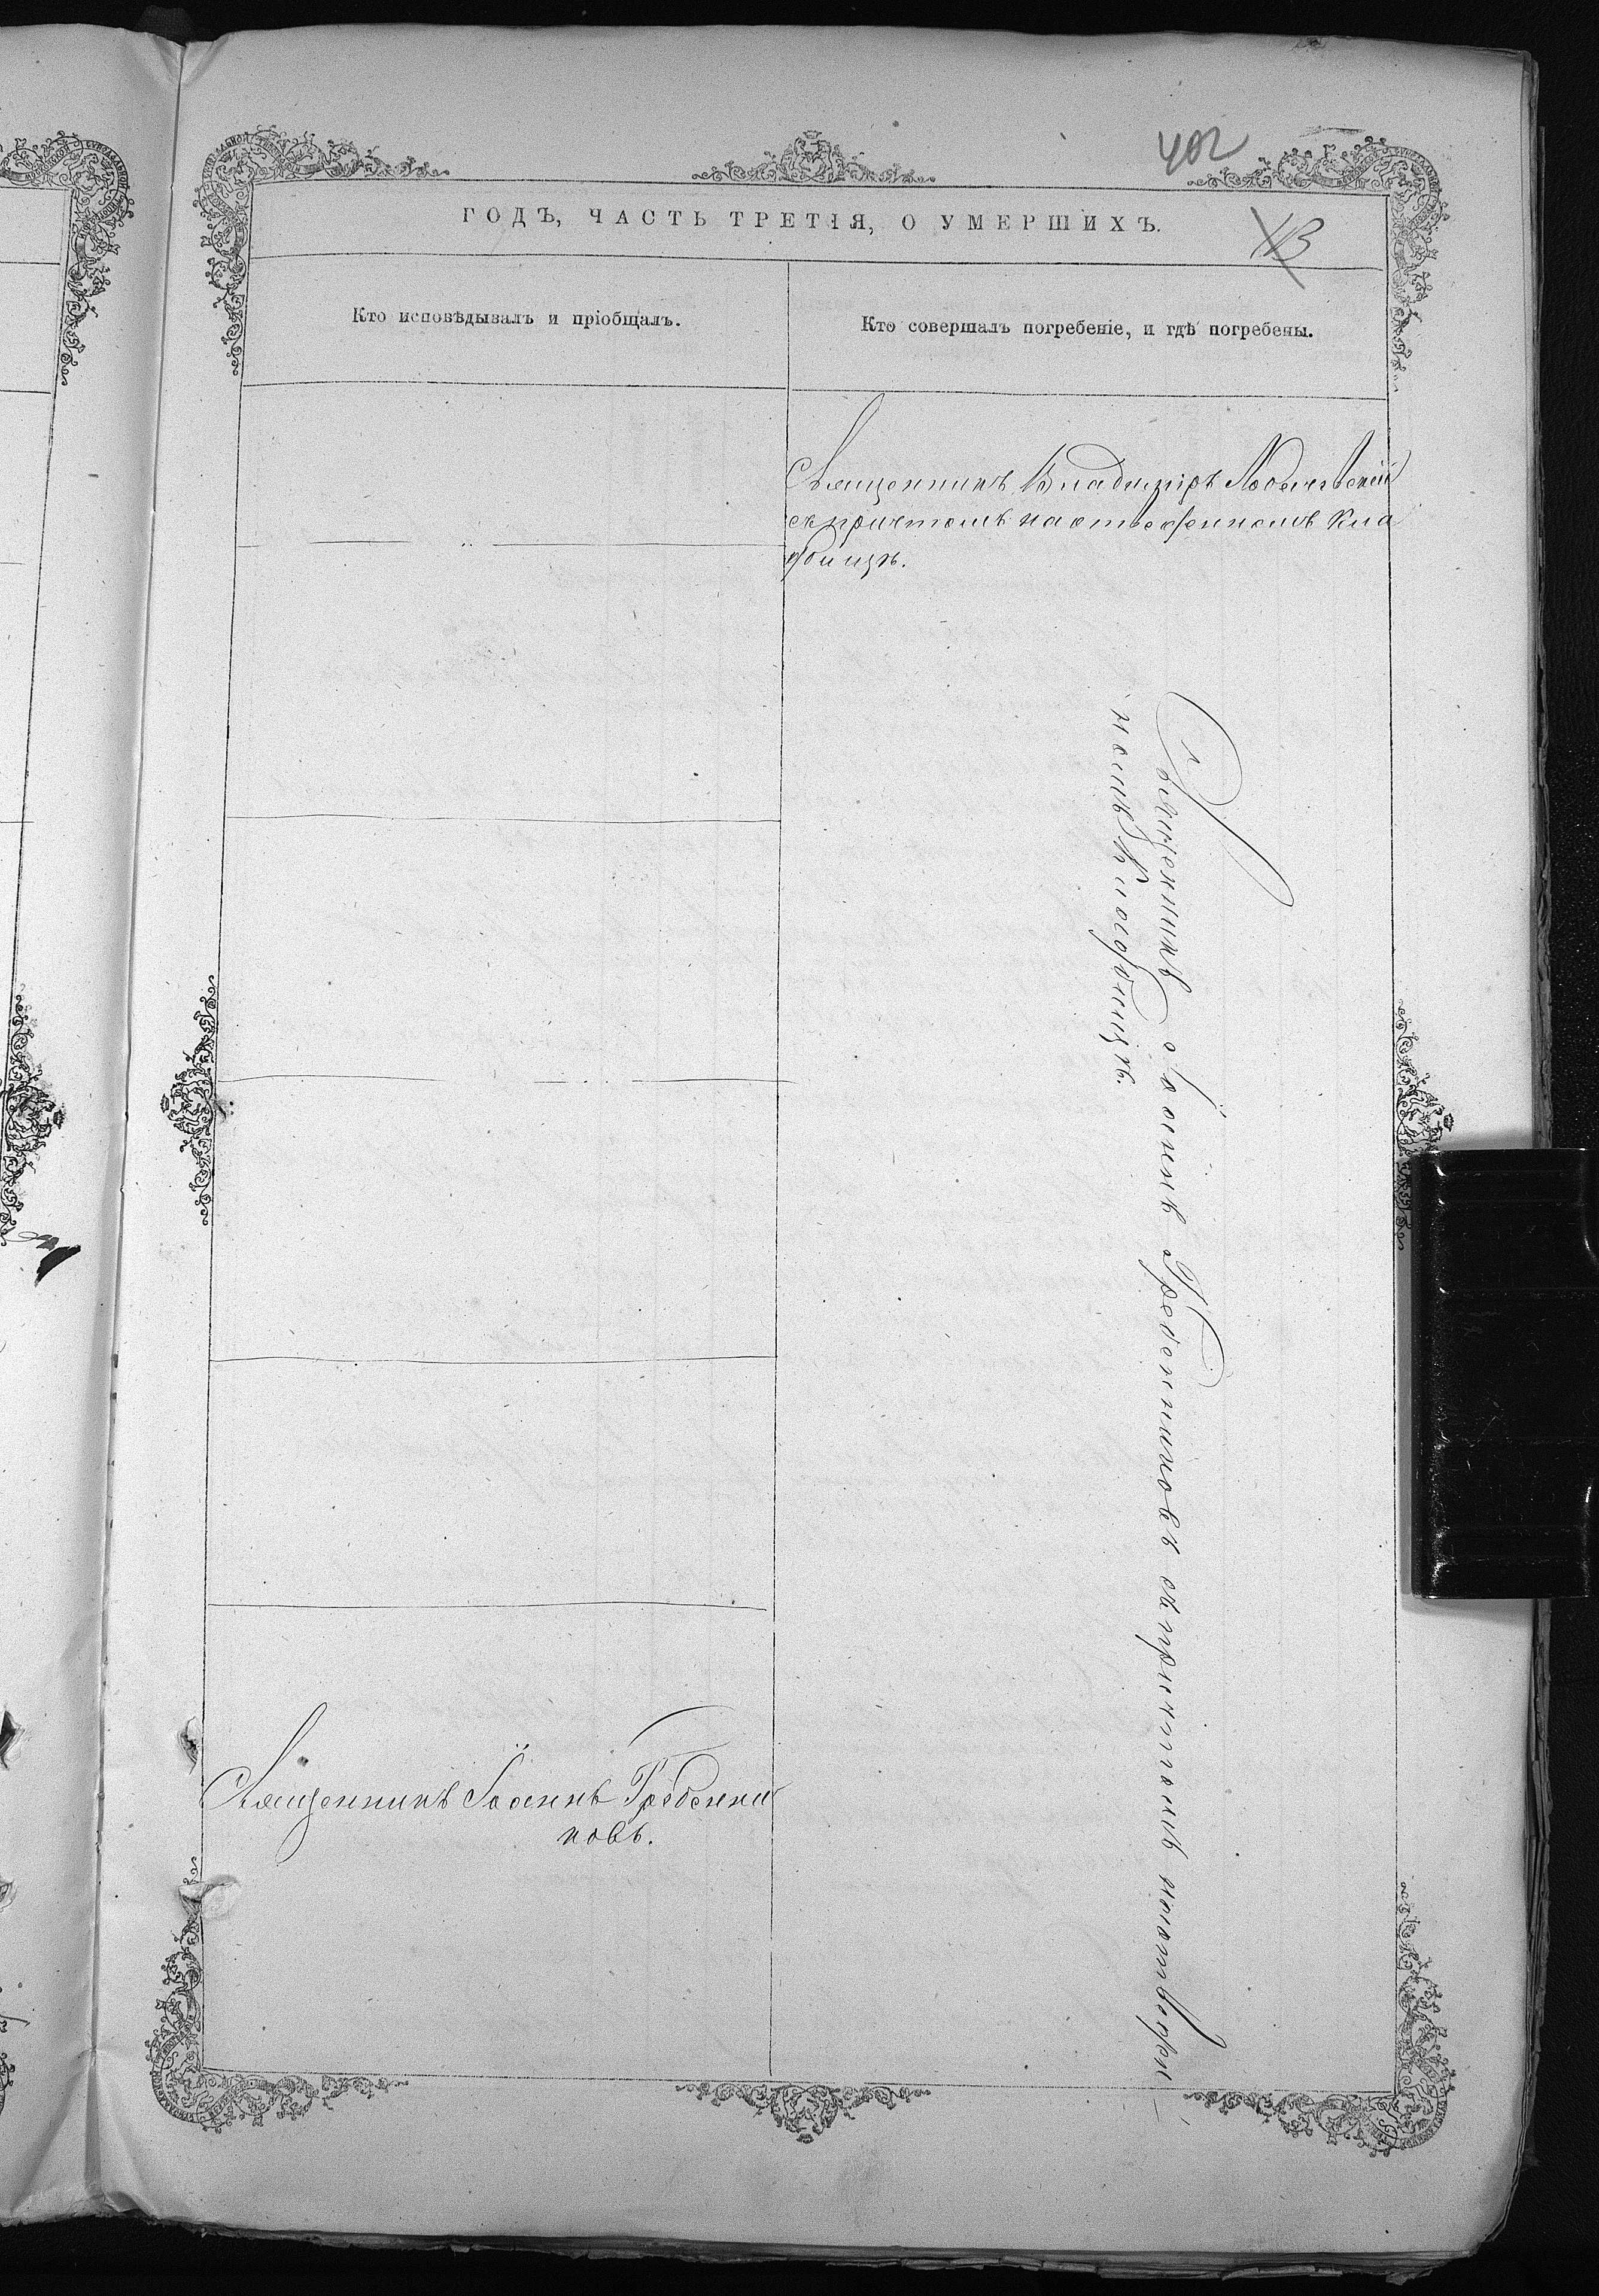 402
ГОДЪ, ЧАСТЬ ТРЕТІЯ, О УМЕРШИХЪ.
Кто исповѣдывалъ и пріобщалъ.
Кто совершалъ погребеніе, и гдѣ погребены.
Священникъ Владиміръ
съ причтомъ на отведенномъ кла
дбищѣ.
Священникъ Іоаннъ Гребенниковъ съ причтомъ на отведен
номъ кладбищѣ.
Священникъ Іоаннъ Гребенни
ковъ.